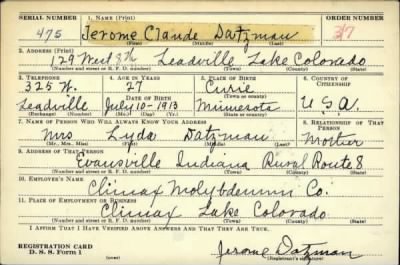 SERIAL NUMBER 1. NAME (Print) ORDER NUMBER
475 Jerome Claude Datzman
(First) (Middle) (Last)
2. ADDRESS (Print)
129 West 8th Leadville Lake Colorado
(Number and street or R. F. D. number) (Town) (County) (State)
3. TELEPHONE 4. AGE IN YEARS 5. PLACE OF BIRTH 6. COUNTRY OF CITIZENSHIP
325 W. 27 Currie
DATE OF BIRTH (Town or county)
Leadville July 10-1913 Minnesota U.S.A.
(Exchange) (Number) (Mo.) (Day) (Yr.) (State or country)
7. NAME OF PERSON WHO WILL ALWAYS KNOW YOUR ADDRESS 8. RELATIONSHIP OF THAT PERSON
Mrs Lyda Datzman Mother
(Mr., Mrs., Miss) (First) (Middle) (Last)
9. ADDRESS OF THAT PERSON
Evansville Indiana Rural Route 8
(Number and street or R. F. D. number) (Town) (County) (State)
10. EMPLOYER'S NAME
Climax Molybdenum Co.
11. PLACE OF EMPLOYMENT OR BUSINESS
Climax Lake Colorado
(Number and street or R. F. D. number) (Town) (County) (State)
I AFFIRM THAT I HAVE VERIFIED ABOVE ANSWERS AND THAT THEY ARE TRUE.
REGISTRATION CARD
D. S. S. Form 1 Jerome Datzman
(Registrant's signature)